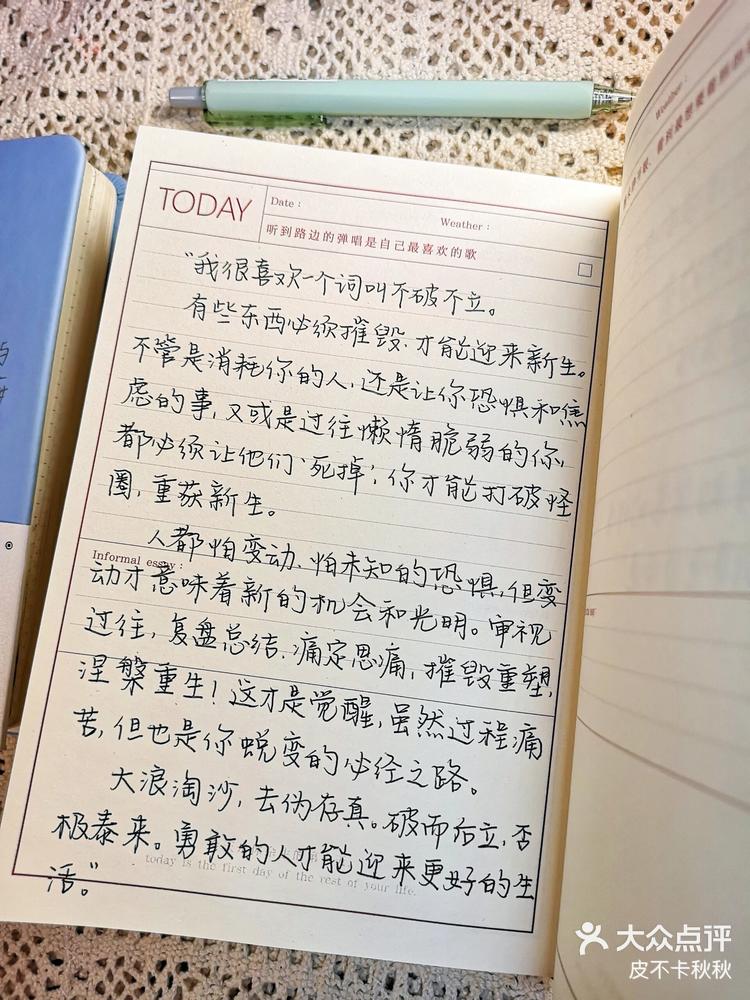 TODAY
Date:
Weather:
听到路边的弹唱是自己最喜欢的歌
“我很喜欢一个词叫不破不立。
有些东西必须摧毁.才能迎来新生。
不管是消耗你的人,还是让你恐惧和焦
虑的事,又或是过往懒惰脆弱的你,
都必须让他们‘死掉’,你才能打破怪
圈,重获新生。
人都怕变动、怕未知的恐惧,但变
Informal essay:
动才意味着新的机会和光明。审视
过往,复盘总结.痛定思痛,摧毁重塑,
涅槃重生!这才是觉醒,虽然过程痛
苦,但也是你蜕变的必经之路。
大浪淘沙,去伪存真。破而后立,否
极泰来。勇敢的人才能迎来更好的生
today is the first day of the rest of your life.
活。”
Weather:
大众点评
皮不卡秋秋